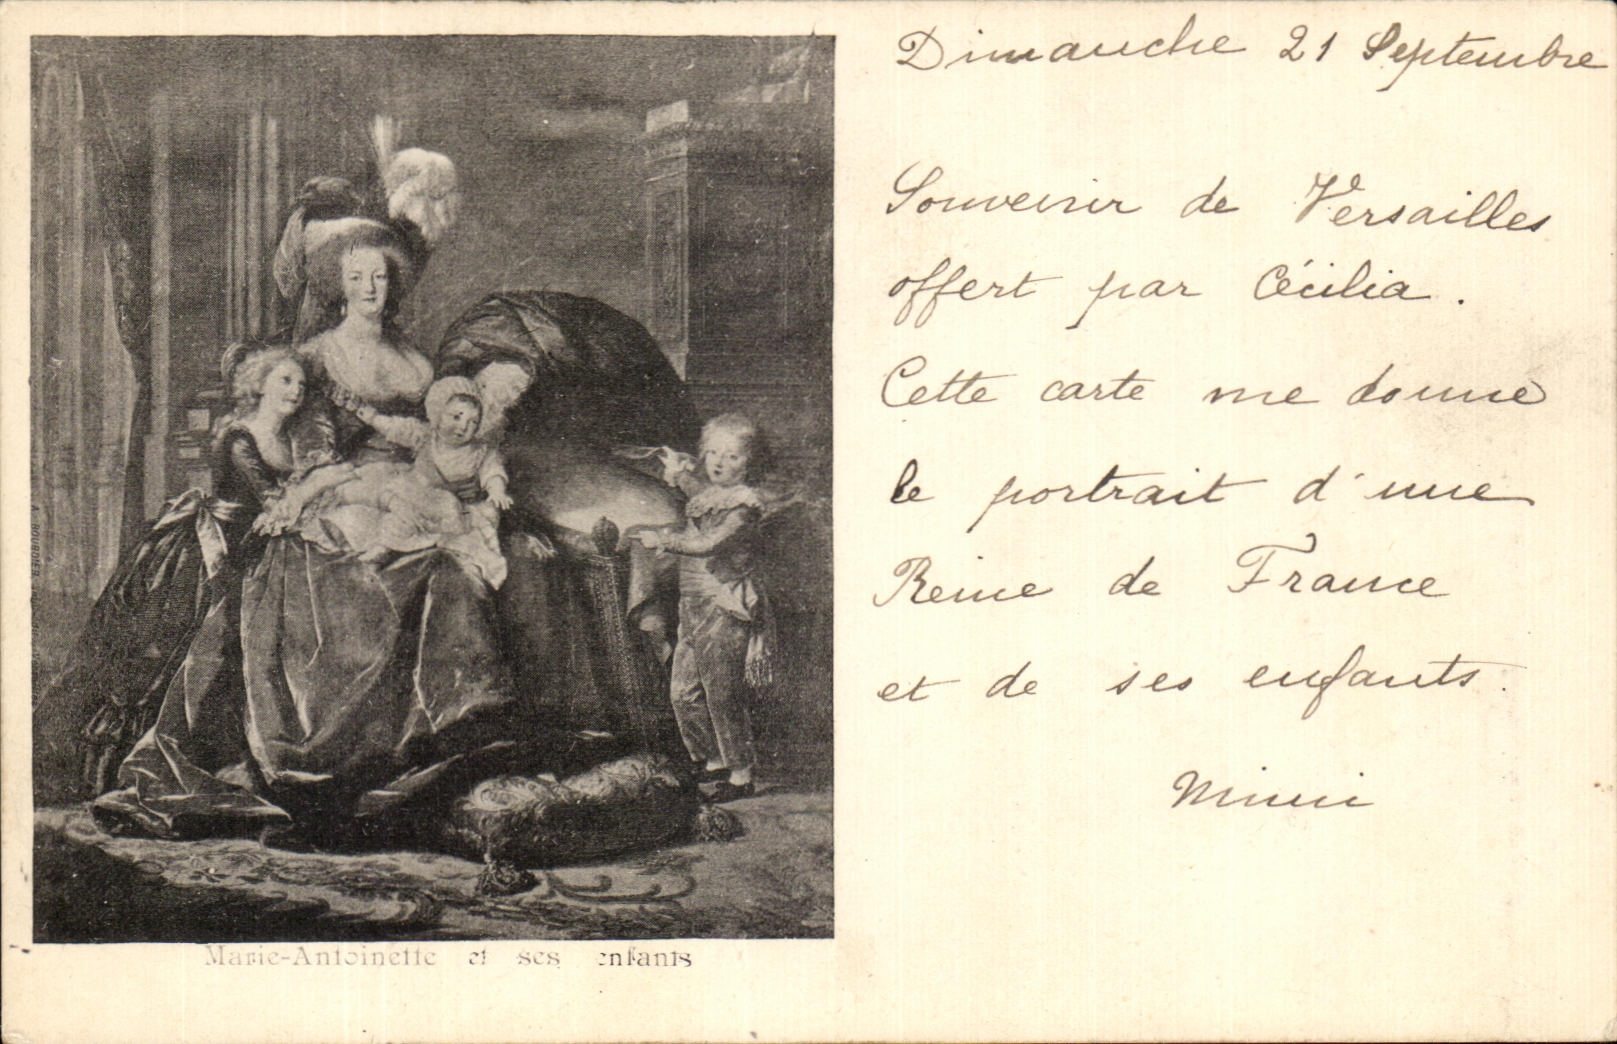 Dimanche 21 Septembre
Souvenir de Versailles
offert par Cécilia.
Cette carte me donne
le portrait d'une
Reine de France
et de ses enfants.
Mimi
Marie-Antoinette et ses enfants
A. BOURDIER